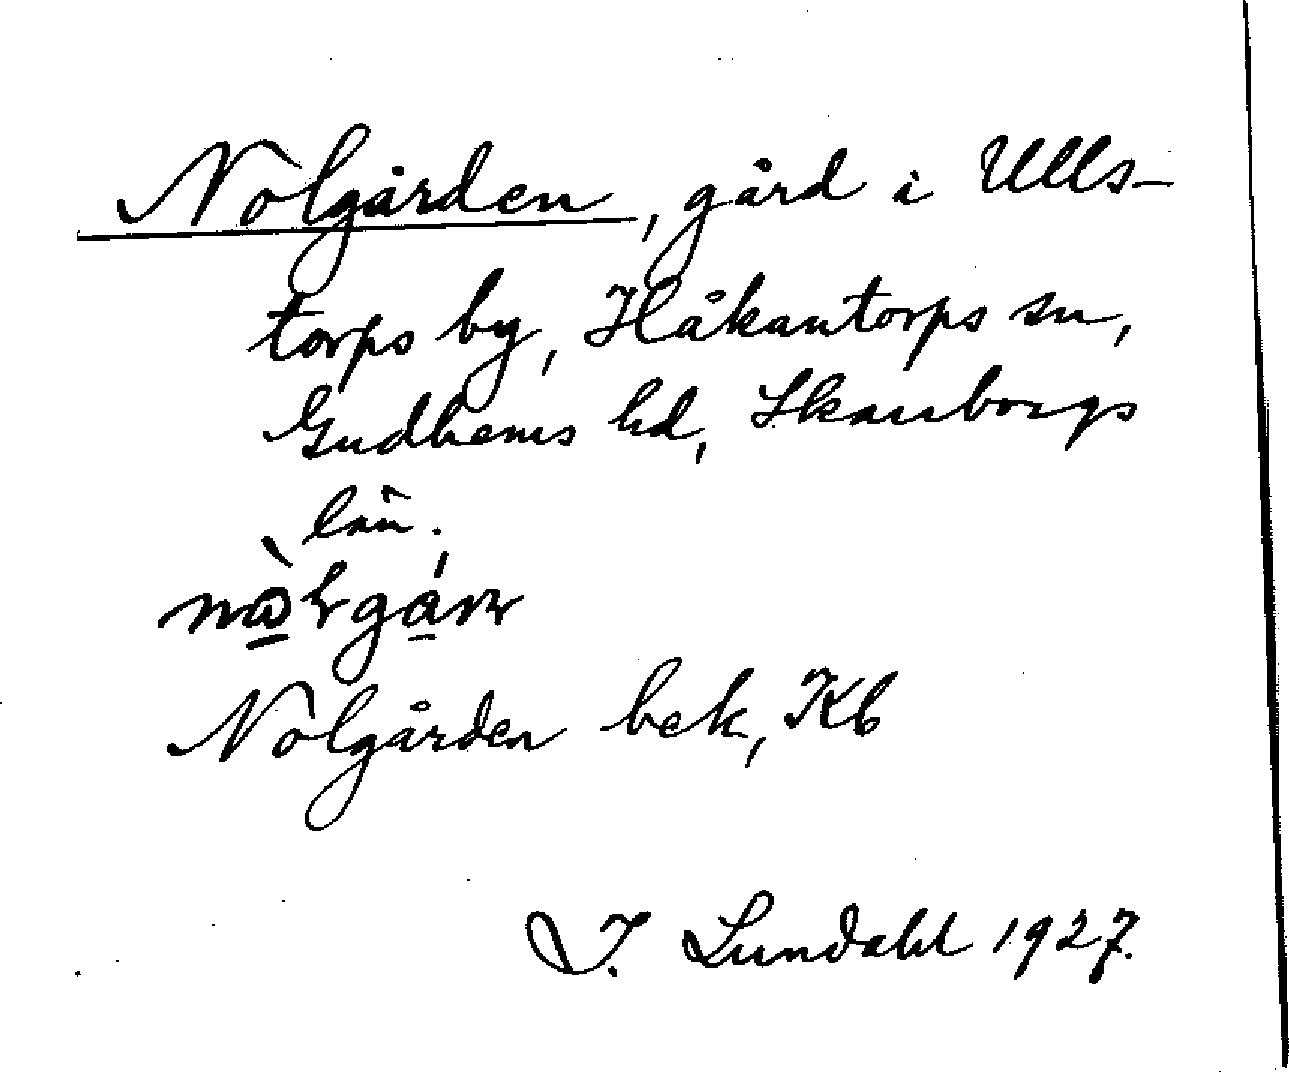 Nolgården, gård i Ulls-
torps by, Håkantorps sn,
Gudhems hd, Skaraborgs
län.
Nolgården bek, Kb
I. Lundahl 1927.